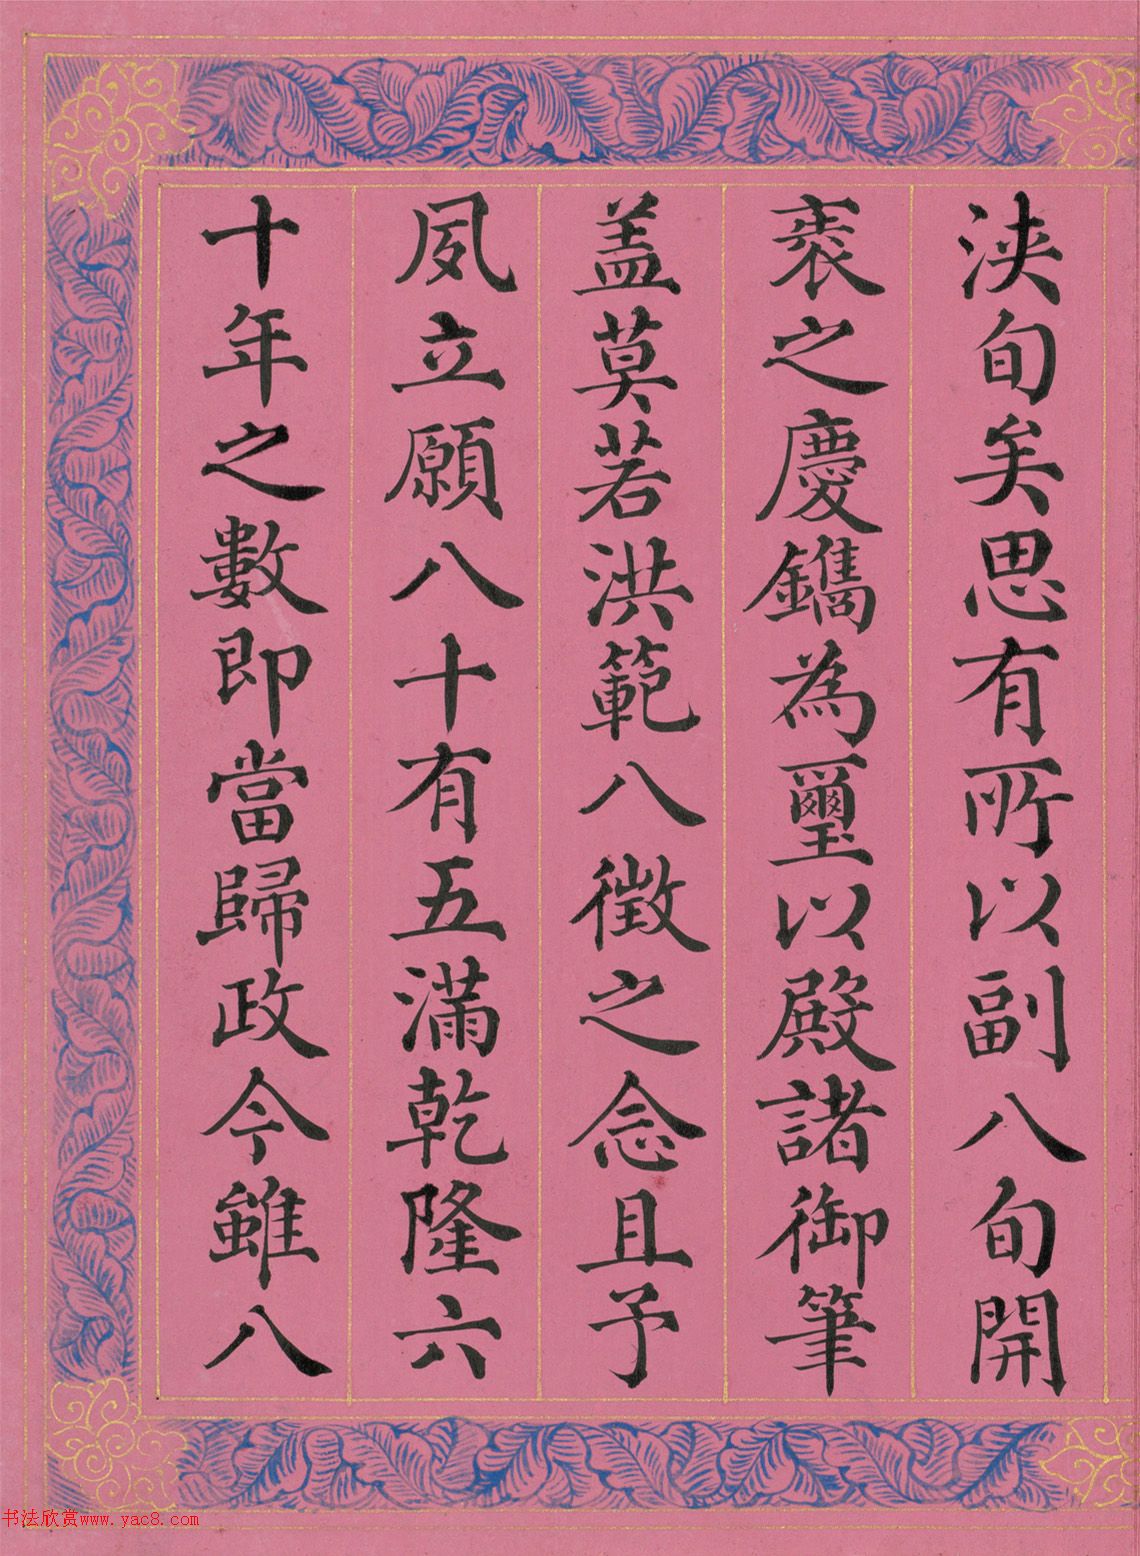 浹旬矣思有所以副八旬開
袠之慶鐫為璽以殿諸御筆
盖莫若洪範八徵之念且予
夙立願八十有五滿乾隆六
十年之數即當歸政今雖八
书法欣赏www.yac8.com